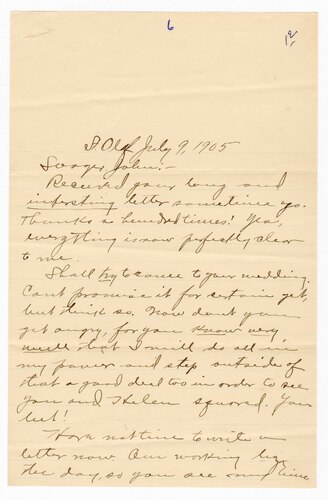 6
12
St. Olaf, July 9, 1905
John:-
Received your long and
interesting letter sometime ago.
Thanks a hundred times! Yes,
everything is now perfectly clear
to me.
Shall try to come to your wedding.
Can't promise it for certain yet,
but think so. Now don't you
get angry, for you know very
well that I will do all in
my power and step outside of
that a good deal too in order to see
you and Helen squared. You
bet!
Have not time to write a
letter now. Am working
the day, so you see our time